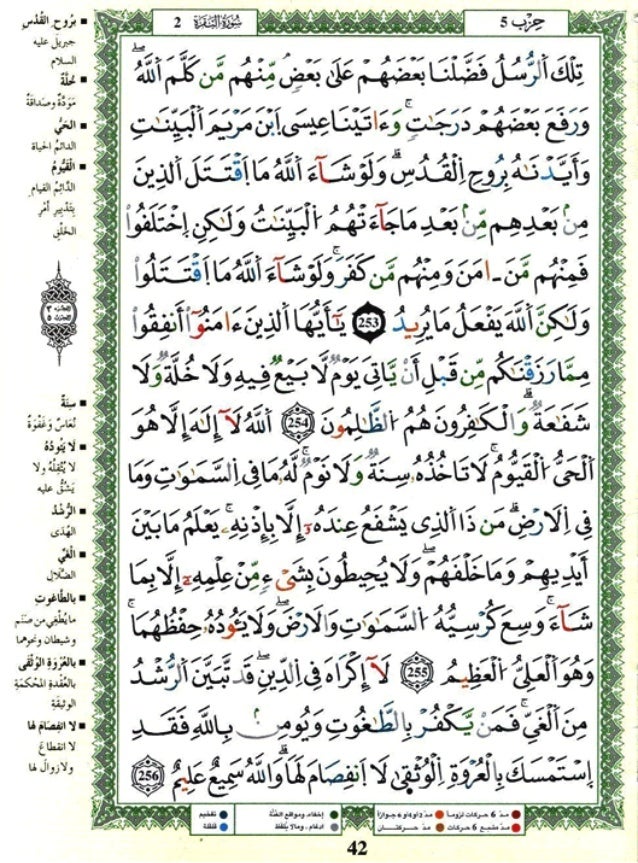 حِزْب 5
سُورَةُ البَقَرَة 2
تِلْكَ اَ۬لرُّسُلُ فَضَّلْنَا بَعْضَهُمْ عَلَىٰ بَعْضٖ مِّنْهُم مَّن كَلَّمَ اَ۬للَّهُ
وَرَفَعَ بَعْضَهُمْ دَرَجَٰتٖۖ وَءَاتَيْنَا عِيسَى اَ۪بْنَ مَرْيَمَ اَ۬لْبَيِّنَٰتِ
وَأَيَّدْنَٰهُ بِرُوحِ اِ۬لْقُدُسِۖ وَلَوْ شَآءَ اَ۬للَّهُ مَا اَ۪قْتَتَلَ اَ۬لذِينَ
مِنۢ بَعْدِهِم مِّنۢ بَعْدِ مَا جَآءَتْهُمُ اُ۬لْبَيِّنَٰتُ وَلَٰكِنِ اِ۪خْتَلَفُواْ
فَمِنْهُم مَّنَ ـ امَنَ وَمِنْهُم مَّن كَفَرَۖ وَلَوْ شَآءَ اَ۬للَّهُ مَا اَ۪قْتَتَلُواْ
وَلَٰكِنَّ اَ۬للَّهَ يَفْعَلُ مَا يُرِيدُ 253 يَٰٓأَيُّهَا اَ۬لذِينَ ءَامَنُوٓاْ أَنفِقُواْ
مِمَّا رَزَقْنَٰكُم مِّن قَبْلِ أَنْ يَّاتِيَ يَوْمٞ لَّا بَيْعٞ فِيهِ وَلَا خُلَّةٞ وَلَا
شَفَٰعَةٞۖ وَالْكَٰفِرُونَ هُمُ اُ۬لظَّٰلِمُونَ 254 اَ۬للَّهُ لَآ إِلَٰهَ إِلَّا هُوَ
اَ۬لْحَيُّ اُ۬لْقَيُّومُۖ لَا تَاخُذُهُۥ سِنَةٞ وَلَا نَوْمٞۖ لَّهُۥ مَا فِي اِ۬لسَّمَٰوَٰتِ وَمَا
فِي اِ۬لَارْضِۖ مَن ذَا اَ۬لذِي يَشْفَعُ عِندَهُۥٓ إِلَّا بِإِذْنِهِۦۖ يَعْلَمُ مَا بَيْنَ
أَيْدِيهِمْ وَمَا خَلْفَهُمْۖ وَلَا يُحِيطُونَ بِشَيْءٖ مِّنْ عِلْمِهِۦٓ إِلَّا بِمَا
شَآءَۖ وَسِعَ كُرْسِيُّهُ اُ۬لسَّمَٰوَٰتِ وَالَارْضَۖ وَلَا يَـُٔودُهُۥ حِفْظُهُمَاۖ
وَهُوَ اَ۬لْعَلِيُّ اُ۬لْعَظِيمُ 255 لَآ إِكْرَاهَ فِي اِ۬لدِّينِۖ قَد تَّبَيَّنَ اَ۬لرُّشْدُ
مِنَ اَ۬لْغَيِّۖ فَمَنْ يَّكْفُرْ بِالطَّٰغُوتِ وَيُومِنۢ بِاللَّهِ فَقَدِ
اِ۪سْتَمْسَكَ بِالْعُرْوَةِ اِ۬لْوُثْقَىٰ لَا اَ۪نفِصَامَ لَهَاۖ وَاللَّهُ سَمِيعٌ عَلِيمٌ 256
بِرُوحِ القُدُسِ
جبريل عليه
السلام
خُلَّةٌ
مَوَدَّةٌ وصداقةٌ
الحَيُّ
الدائمُ الحياة
القَيُّومُ
الدَّائِمُ القيامِ
بِتَدْبِيرِ أَمْرِ
الخَلْقِ
سِنَةٌ
نُعَاسٌ وَغَفْوَةٌ
لا يَئُودُهُ
لا يُثْقِلُهُ ولا
يَشُقُّ عليه
الرُّشْدُ
الهُدَى
الغَيِّ
الضَّلال
بِالطَّاغوتِ
ما يُطْغِي من صَنَم
وشيطان ونحوهما
بالعُرْوَةِ الوُثْقَى
بالعُقْدةِ المُحْكَمَةِ
الوثيقةِ
لا انفِصَامَ لها
لا انقطاعَ
ولا زوالَ لها
مدّ 6 حركات لزوماً
مدّ 2 أو 4 أو 6 جوازاً
إخفاء، ومواقع الغُنَّة
تفخيم
مدّ مشبع 6 حركات
مدّ حركتان
ادغام، وما لا يُلفظ
قلقلة
42